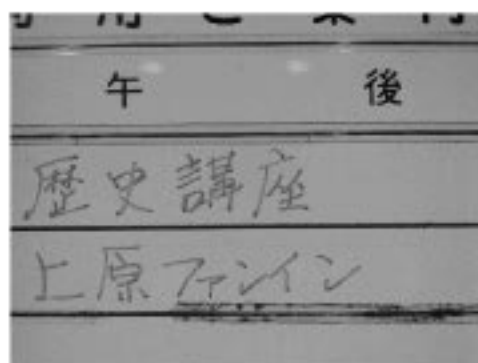 午後
歴史講座
上原ファンイン